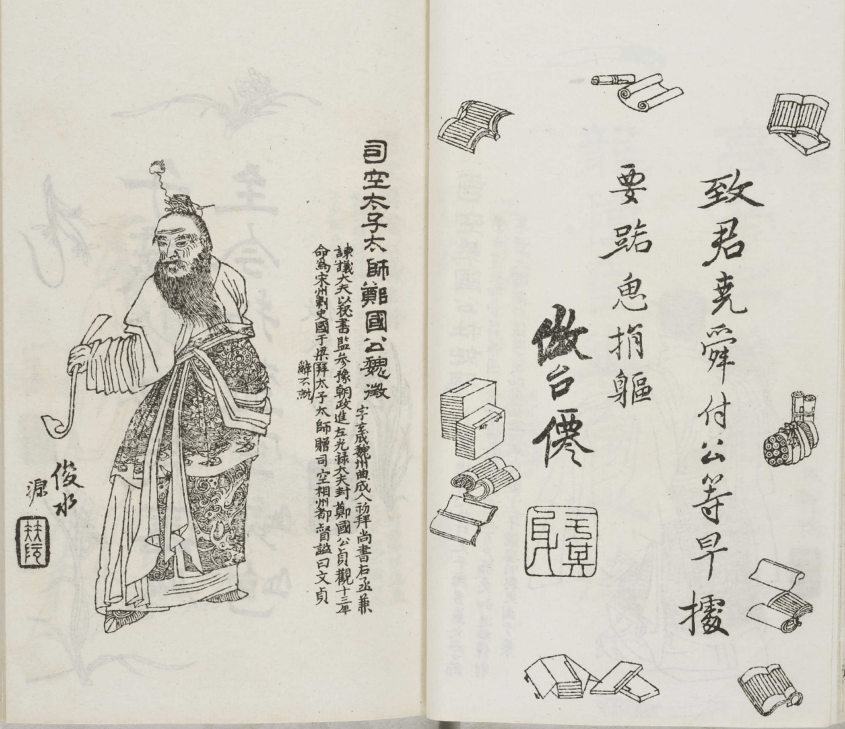 致君堯舜付公等早據
要路思捐軀
倣台僊
司空太子太師鄭國公魏徵
字玄成魏州曲成人初拜尚書右丞兼
諫議大夫以秘書監參豫朝政進左光祿大夫封鄭國公貞觀十三年
命為宋州刺史國于梁拜太子太師贈司空相州都督謚曰文貞
辭不就
俊水
源